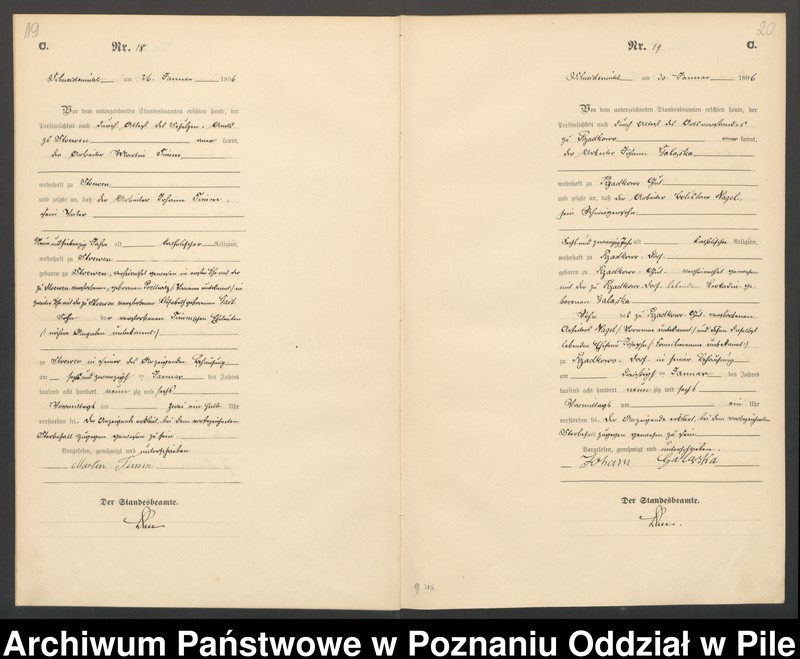 19
C.
Nr. 18
Schneidemühl am 26. Januar 1896
Vor dem unterzeichneten Standesbeamten erschien heute, der
Persönlichkeit nach durch Attest des Schulzen-Amts
zu Stoewen kannt,
der Arbeiter Martin Timm
wohnhaft zu Stoewen
und zeigte an, daß der Arbeiter Johann Timm,
sein Vater
Neunundsiebenzig Jahre alt katholischer Religion,
wohnhaft zu Stoewen
geboren zu Stoewen, verheirathet gewesen in erster Ehe mit der
zu Stoewen verstorbenen, geborenen (Vorname unbekannt) in
zweiter Ehe mit der zu Stoewen verstorbenen Elisabeth geborenen
Sohn der verstorbenen Timm'schen Eheleuten
(nähere Angaben unbekannt)
zu Stoewen in seiner des Anzeigenden Behausung
am sechsundzwanzigsten Januar des Jahres
tausend acht hundert neunzig und sechs
Vormittags um zwei ein halb Uhr
verstorben sei. Der Anzeigende erklärt, bei dem vorbezeichneten
Sterbefall zugegen gewesen zu sein.
Vorgelesen, genehmigt und unterschrieben
Martin Timm
Der Standesbeamte.
20
Nr. 19
C.
Schneidemühl am 30. Januar 1896
Vor dem unterzeichneten Standesbeamten erschien heute, der
Persönlichkeit nach durch Attest des Ortsvorstandes
zu Rzadkowo kannt,
der Arbeiter Johann Galaska
wohnhaft zu Rzadkowo Gut
und zeigte an, daß der Arbeiter Boleslaw Nagel,
sein Schwiegersohn
Sechsundzwanzig Jahre alt katholischer Religion,
wohnhaft zu Rzadkowo-Dorf
geboren zu Rzadkowo-Gut verheirathet gewesen
mit der zu Rzadkowo-Dorf lebenden ge-
borenen Galaska
Sohn des zu Rzadkowo-Gut verstorbenen
Arbeiters Nagel (Vorname unbekannt) und dessen daselbst
lebenden Ehefrau Josepha (Familienname unbekannt)
zu Rzadkowo-Dorf in seiner Behausung
am dreißigsten Januar des Jahres
tausend acht hundert neunzig und sechs
Vormittags um ein Uhr
verstorben sei. Der Anzeigende erklärt, bei dem vorbezeichneten
Sterbefall zugegen gewesen zu sein
Vorgelesen, genehmigt und unterschrieben.
Johann Galąska
Der Standesbeamte.
Archiwum Państwowe w Poznaniu Oddział w Pile